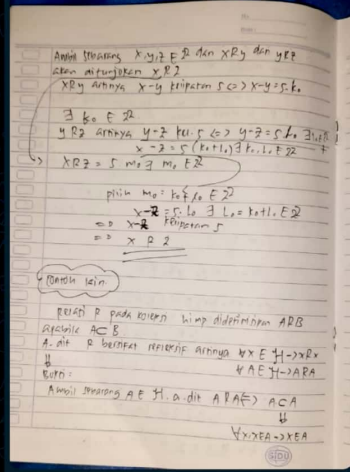 Ambil sebarang x,y,z ∈ ℤ dan xRy dan yRz
akan ditunjukan xRz
xRy artinya x-y kelipatan 5 <=> x-y = 5.k₀
∃ k₀ ∈ ℤ
yRz artinya y-z kel. 5 <=> y-z = 5.l₀ ∃
x-z = 5(k₀+l₀) ∃ k₀,l₀ ∈ ℤ
xRz = 5 m₀ ∃ m₀ ∈ ℤ
pilih m₀ = k₀+l₀ ∈ ℤ
x-z = 5.L₀ ∃ L₀ = k₀+l₀ ∈ ℤ
=> x-z kelipatan 5
=> x R z
contoh lain
Relasi R pada koleksi himp didefinisikan ARB
apabila A⊂B
A. dit R bersifat refleksif artinya ∀x ∈ H -> xRx
⇓ ∀A ∈ H -> ARA
Bukti:
Ambil sebarang A ∈ H. a.dit ARA <=> A⊂A
⇓
∀x.x∈A -> x∈A
SIDU